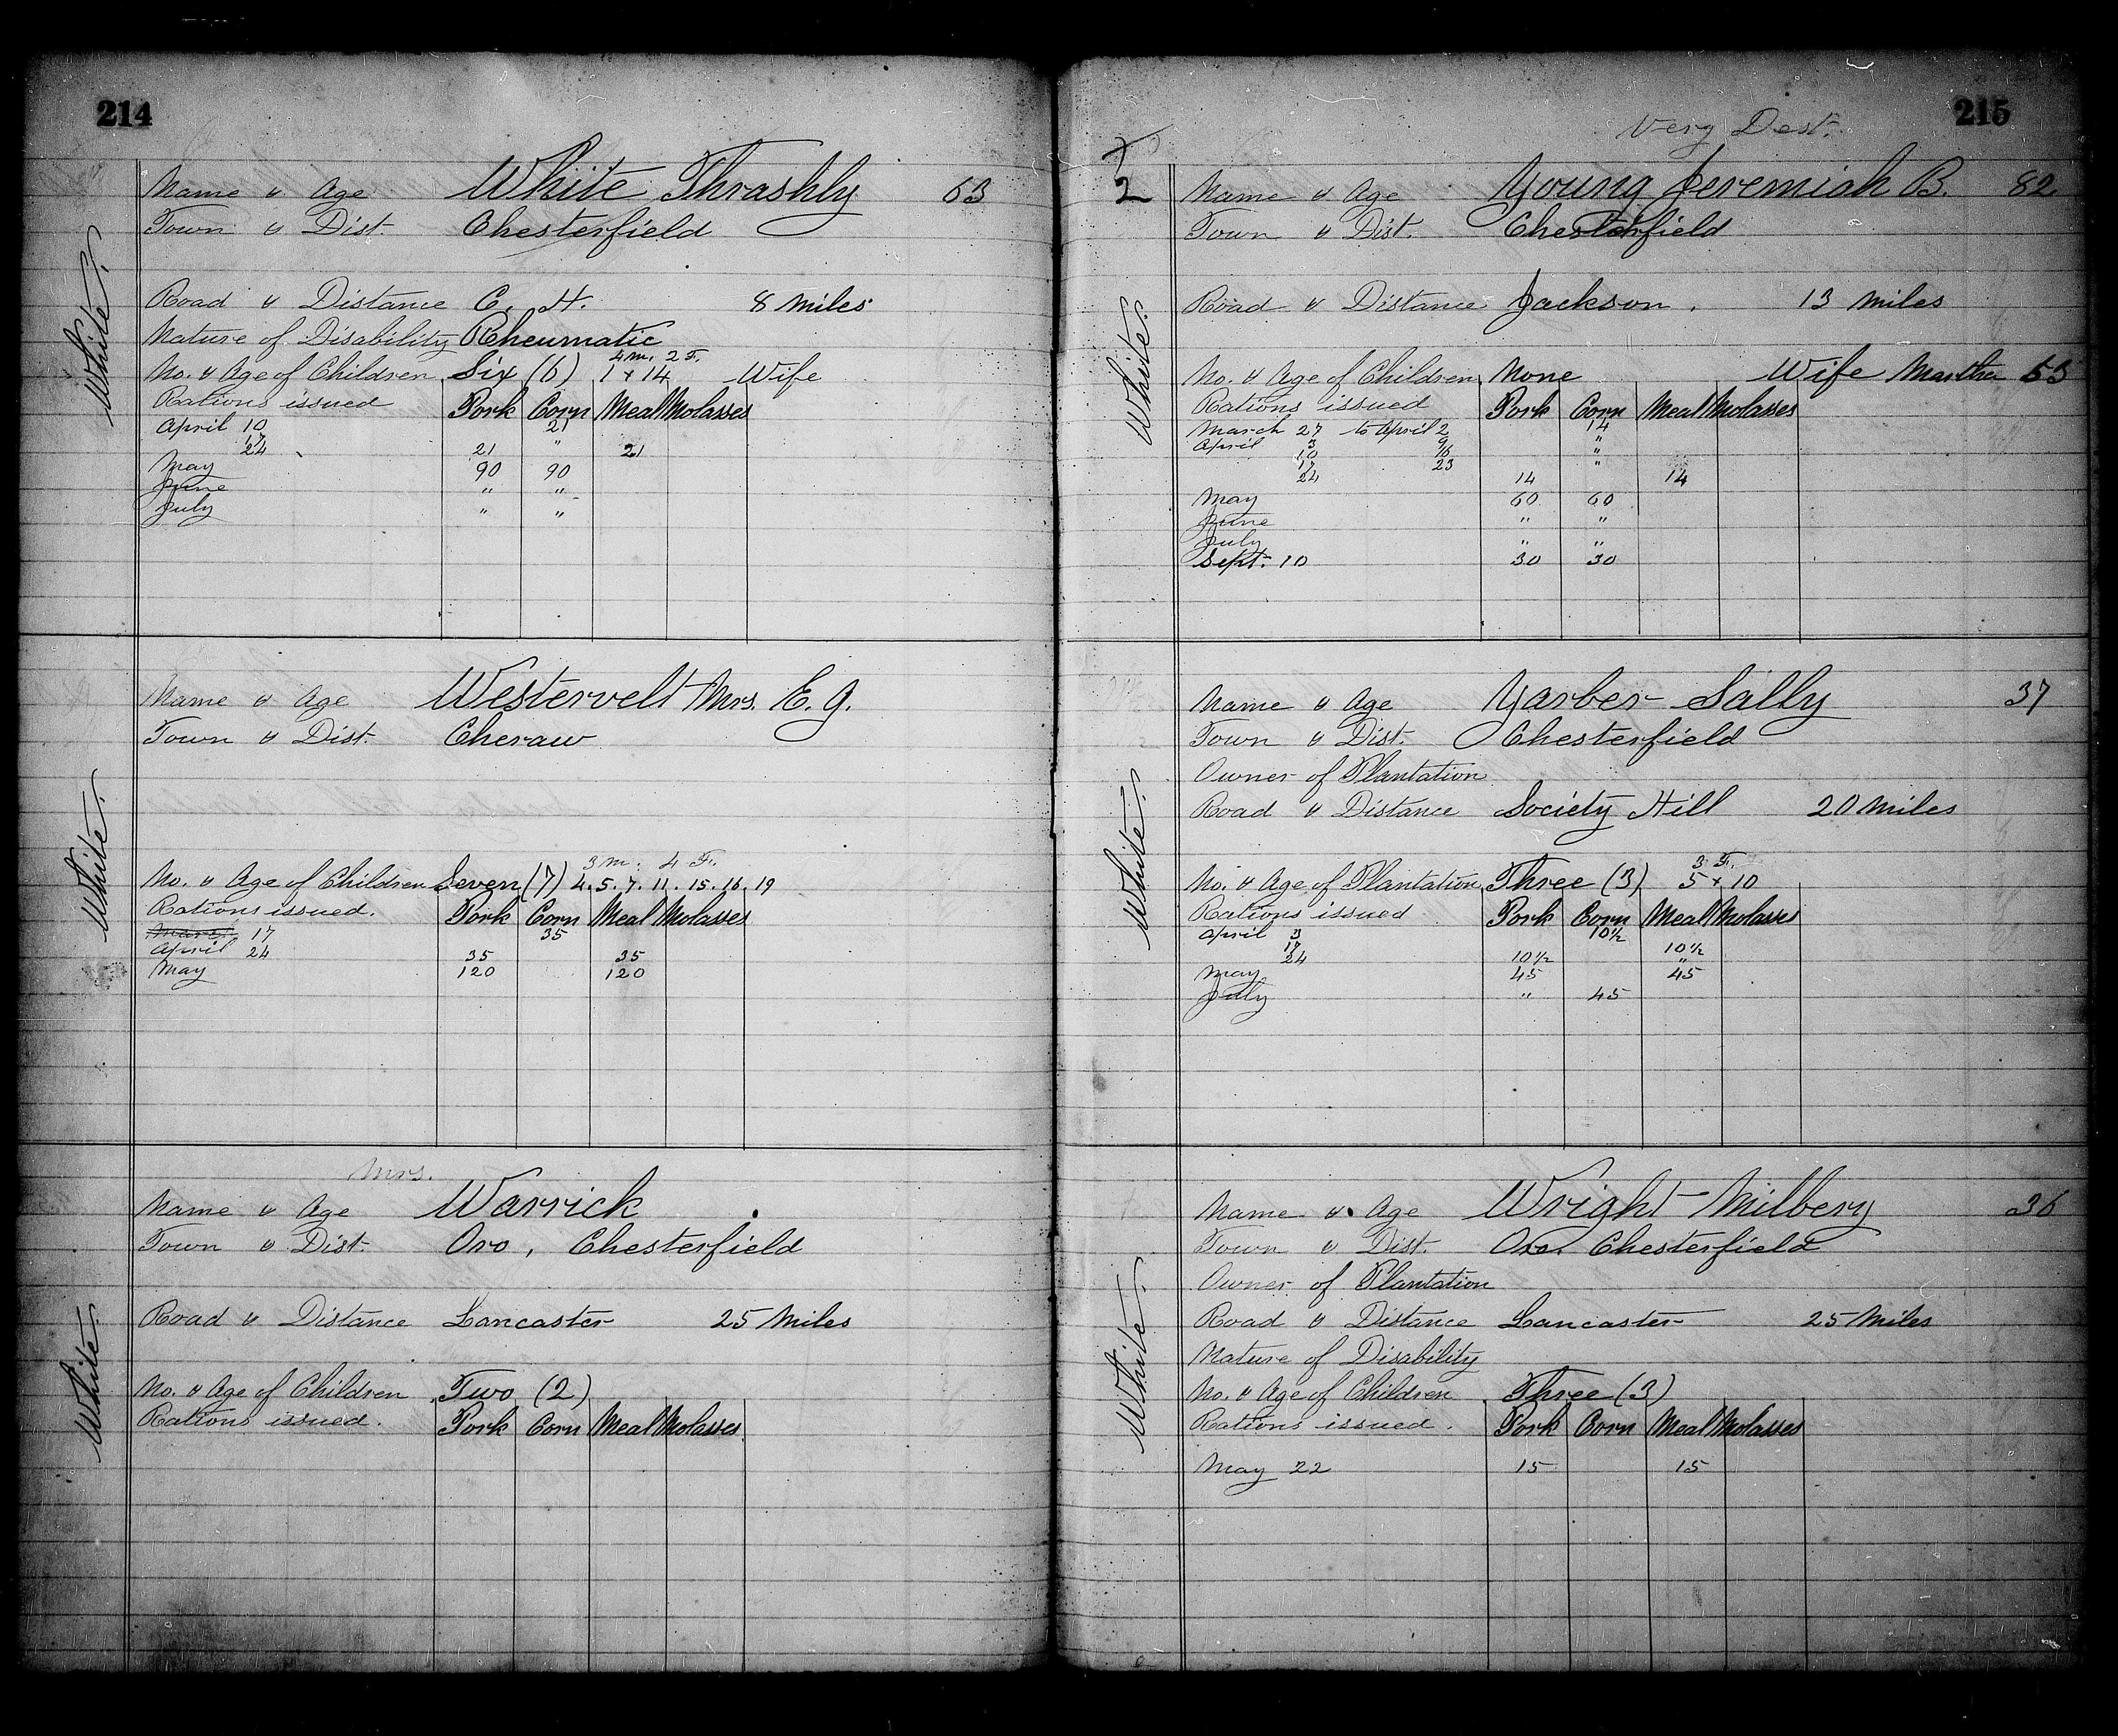 214
White.
Name & Age White Thrashly 63
Town & Dist. Chesterfield
Road & Distance C. H. 8 Miles
Nature of Disability Rheumatic
4 M. 2 F.
No. & Age of Children Six (6) 1 + 14 Wife
Rations issued Pork Corn Meal Molasses
April 10 21
17 "
24 21 21
May 90 90
June " "
July " "
White.
Name & Age Westervelt Mrs. E. G.
Town & Dist. Cheraw
3 M. 4 F.
No. & Age of Children Seven (7) 4. 5. 7. 11. 15. 16. 19
Rations issued. Pork Corn Meal Molasses
17 35
April 24 35 35
May 120 120
White.
Mrs.
Name & Age Warrick
Town & Dist. Oro, Chesterfield
Road & Distance Lancaster 25 Miles
No. & Age of Children Two (2)
Rations issued. Pork Corn Meal Molasses
215
Very Dest.
2
White.
Name & Age Young Jeremiah B. 82
Town & Dist. Chesterfield
Road & Distance Jackson. 13 Miles
No. & Age of Children None Wife Martha 53
Rations issued Pork Corn Meal Molasses
March 27 to April 2 14
April 3 9 "
10 16 "
17 23 "
24 14 14
May 60 60
June " "
July " "
Sept. 10 30 30
White.
Name & Age Yarber Sally 37
Town & Dist. Chesterfield
Owner of Plantation
Road & Distance Society Hill 20 Miles
3 F.
No. & Age of Plantation Three (3) 5 + 10
Rations issued Pork Corn Meal Molasses
April 3 10½
17 10½
24 10½ "
May 45 45
July " 45
White.
Name & Age Wright Milbery 36
Town & Dist. Oro. Chesterfield
Owner of Plantation
Road & Distance Lancaster 25 Miles
Nature of Disability
No. & Age of Children Three (3)
Rations issued. Pork Corn Meal Molasses
May 22 15 15